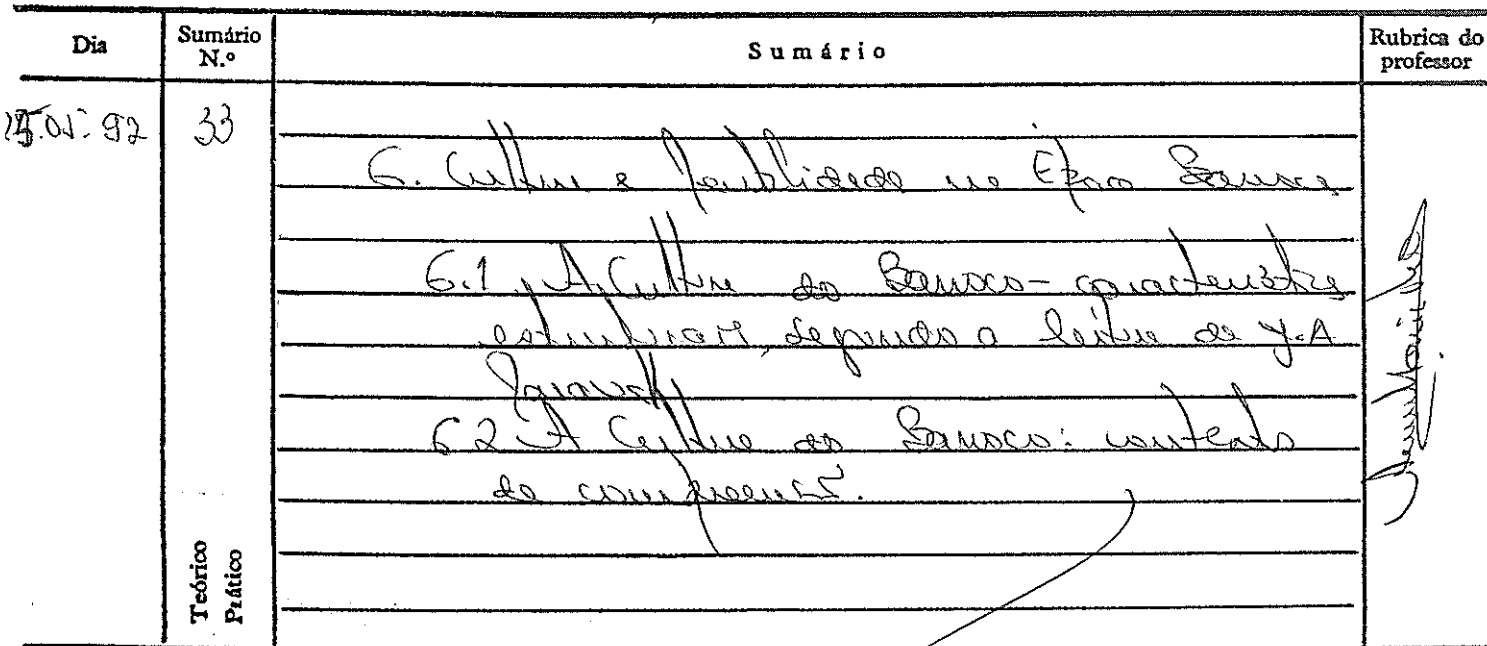 Dia
Sumário N.º
Sumário
Rubrica do professor
05.92
33
6. Cultura e na Época Barroca
6.1 A Cultura do Barroco - características
estruturais, segundo a leitura de J.A
Maravall
6.2 A Cultura do Barroco: contexto
de
Teórico
Prático